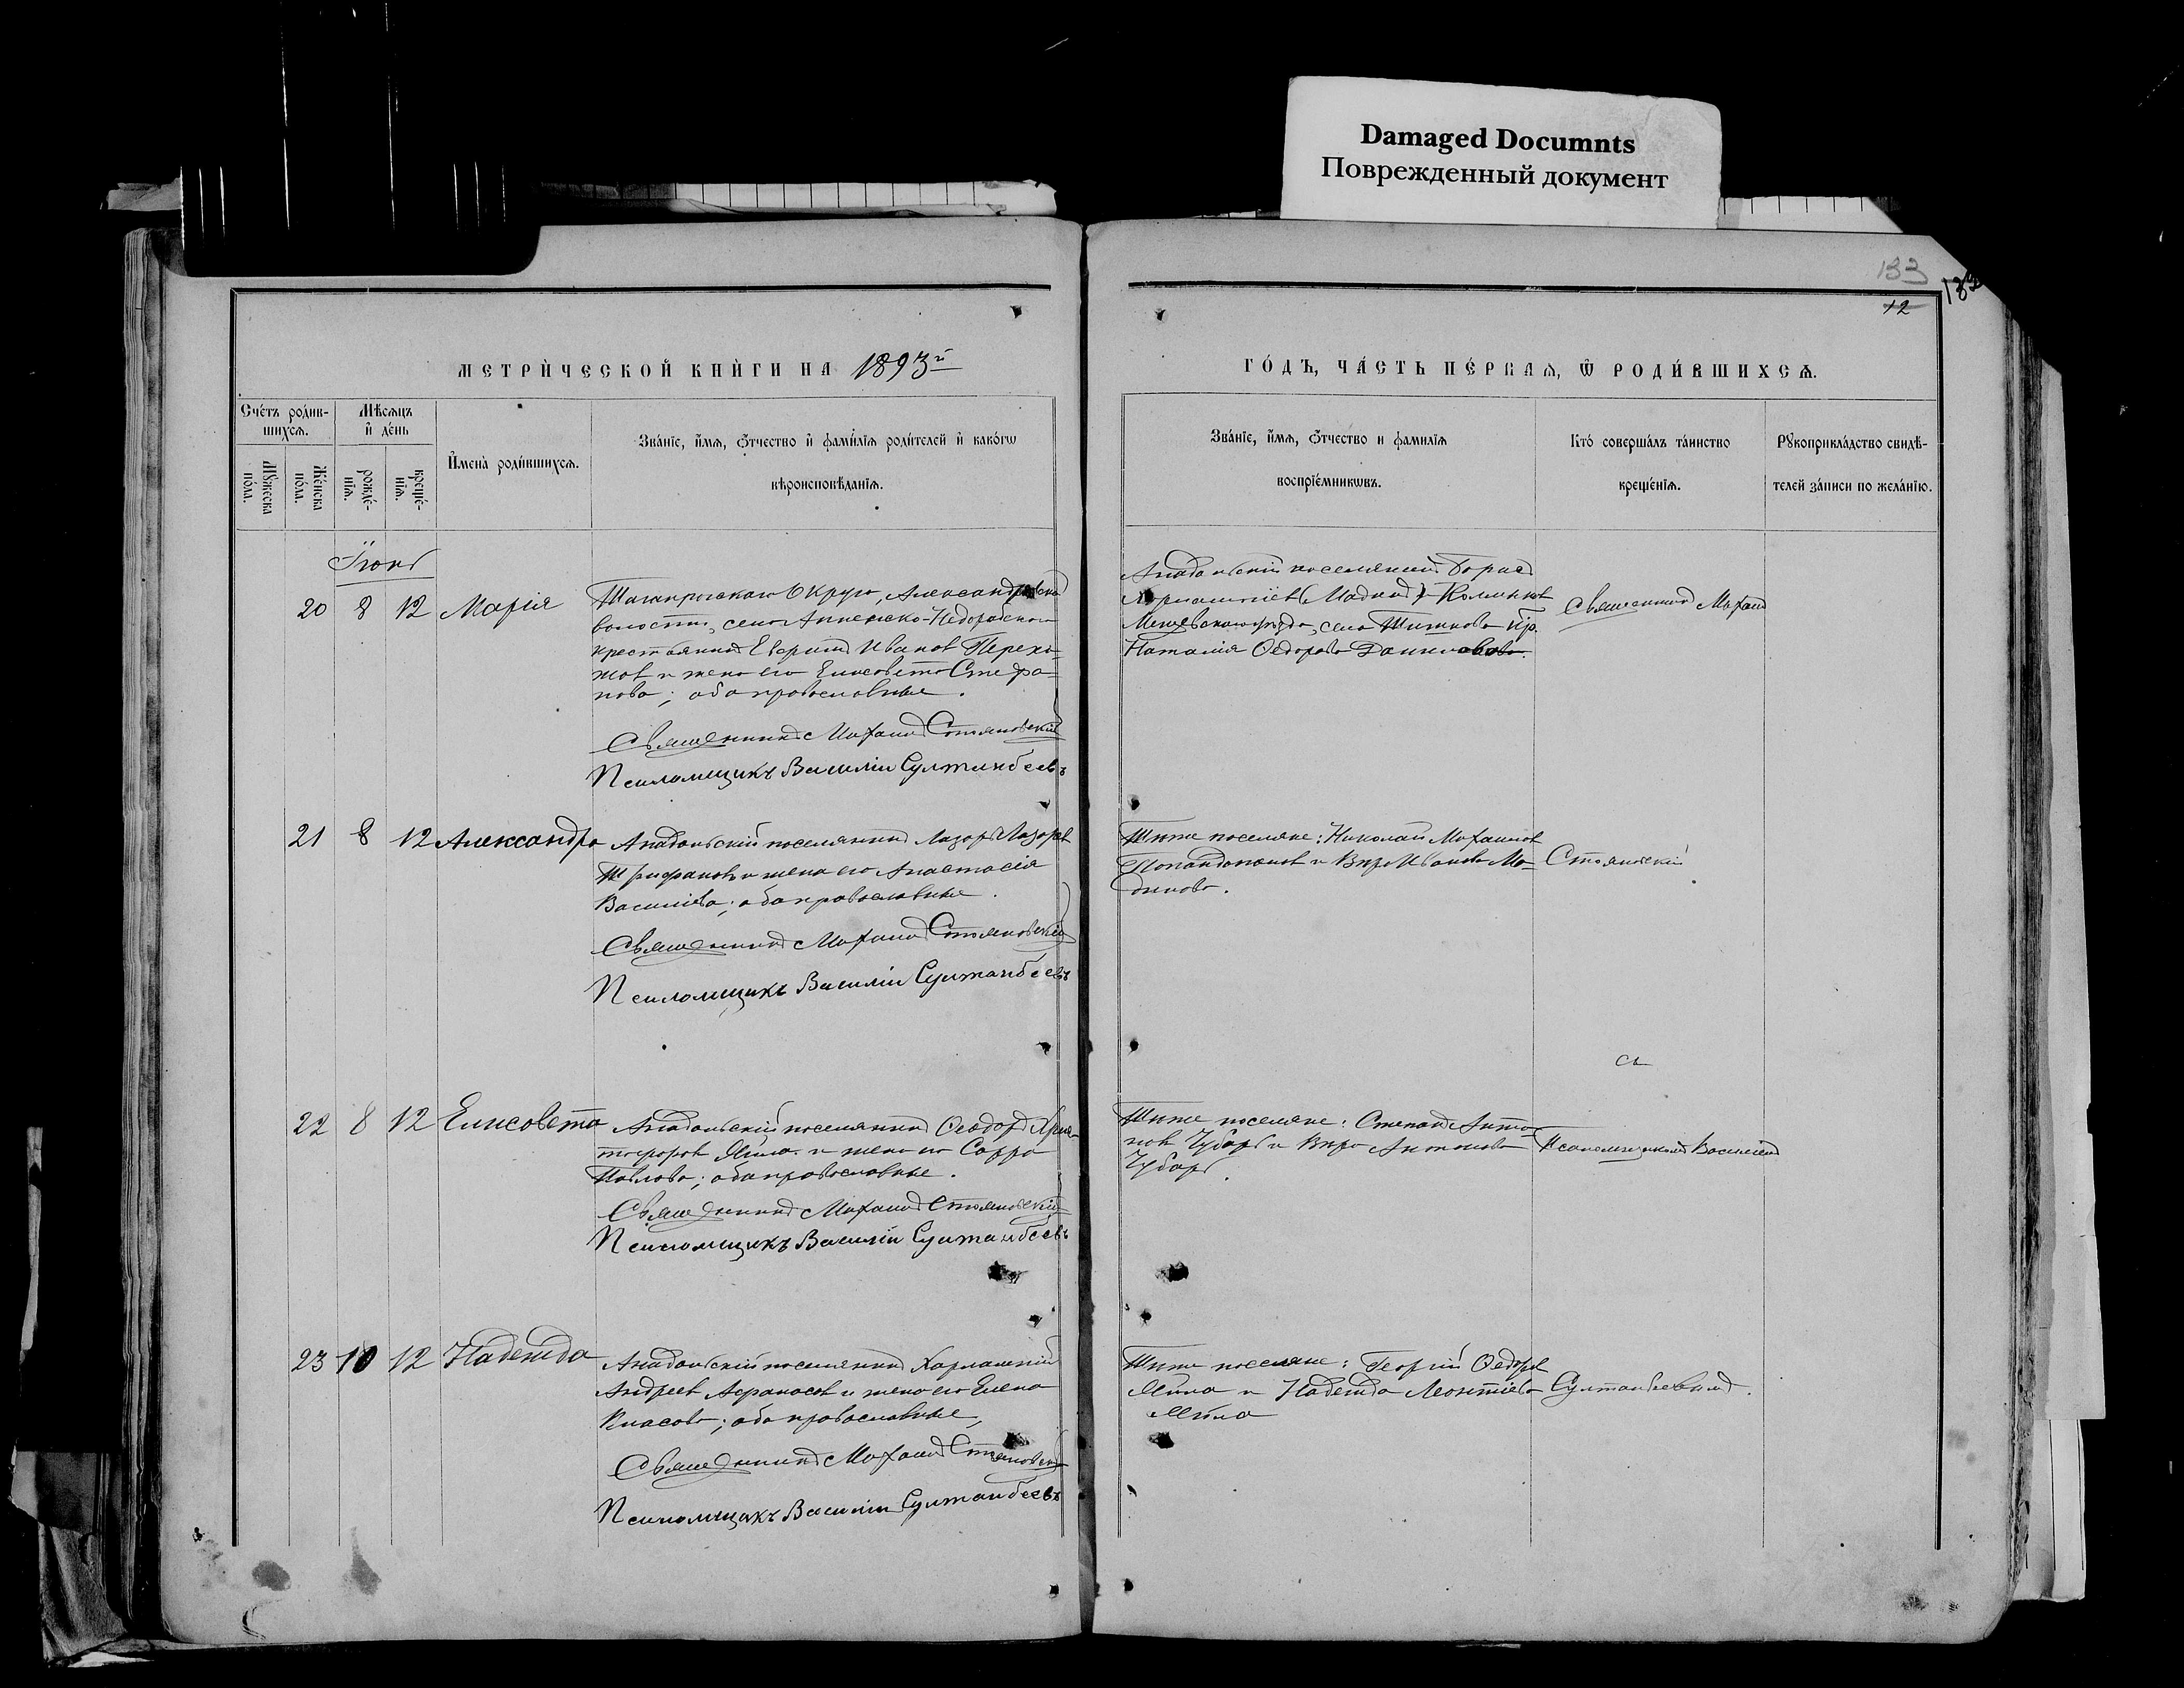 Damaged Documnts
Поврежденный документ
133
183
12
МЕТРИ́ЧЕСКОЙ КНИ́ГИ НА 1893й
ГО́ДЪ, ЧА́СТЬ ПЕ́РВАЯ, Ѿ РОДИ́ВШИХСѦ.
Сче́тъ роди́в-
шихсѧ.
Мꙋжеска по́ла.
Же́нска по́ла.
Мѣсѧцъ
и де́нь
рожде́-
нїѧ.
креще́-
нїѧ.
И҆мена̀ роди́вшихсѧ.
Зва́нїе, и҆́мѧ, ѻ҆́тчество и҆ фамн́лїѧ роди́телей и҆ како́гѡ
вѣроисповѣ́данїѧ.
Зва́нїе, и҆́мѧ, ѻ҆́тчество и фами́лїѧ
воспрїе́мникѡвъ.
Кто̀ соверша́лъ та́инство
креще́нїѧ.
Рꙋкоприкла́дство свидѣ́-
телей за́писи по жела́нїю.
Іюнь
20 8 12 Марія
Таганрогскаго Округа, Александровской
волости, села Анненско-
крестьянинъ Иванов
жов и жена его Елисовета Стефа-
нова; оба православные.
Священникъ Михаилъ Стояновскій
Псаломщикъ Василій Султанбеевъ
поселянинъ Борисъ
села
Наталія Федорова
Священникъ Михаилъ
21 8 12 Александра
поселянинъ Лазорь Лазорев
Трифонов и жена его Анастасія
Василіева; оба православные.
Священникъ Михаилъ Стояновскій
Псаломщикъ Василій Султанбеевъ
Тиже поселяне: Николай Михаилов
и Вѣра Иванова
Стояновскій
съ
22 8 12 Елисовета
поселянинъ Феодоръ Хрис-
тофоров и жена его Сарра
Павлова; оба православные.
Священникъ Михаилъ Стояновскій
Псаломщикъ Василій Султанбеевъ
Тиже поселяне: Степанъ Анто-
нов Чубарь и Вѣра Антонова
Чубарь.
Псаломщикомъ Василіемъ
23 10 12 Надежда
поселянинъ Харлампій
Андреев Афанасов и жена его Елена
Власова; оба православные,
Священникъ Михаилъ Стояновскій
Псаломщикъ Василій Султанбеевъ
Тиже поселяне: Георгій Федоров
и Надежда Леонтіева
Султанбеевымъ.